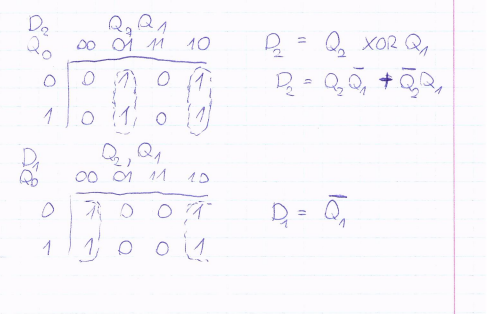 D₂ Q₂Q₁
Q₀ 00 01 11 10
0 0 1 0 1
1 0 1 0 1
D₂ = Q₂ XOR Q₁
D₂ = Q₂Q̅₁ + Q̅₂Q₁
D₁ Q₂,Q₁
Q₀ 00 01 11 10
0 1 0 0 1
1 1 0 0 1
D₁ = Q̅₁